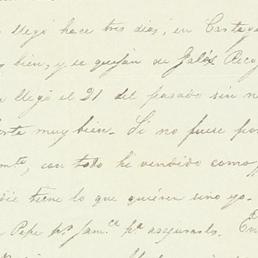 llegó hace tres dias, en Cartag
bien, y se quejan de
llegó el 21 del pasado sin n
muy bien. Si no fuese por
con todo he vendido como
tiene lo que quieren sino yo.
Pepe pª Jamcª pª asegurarlo. En